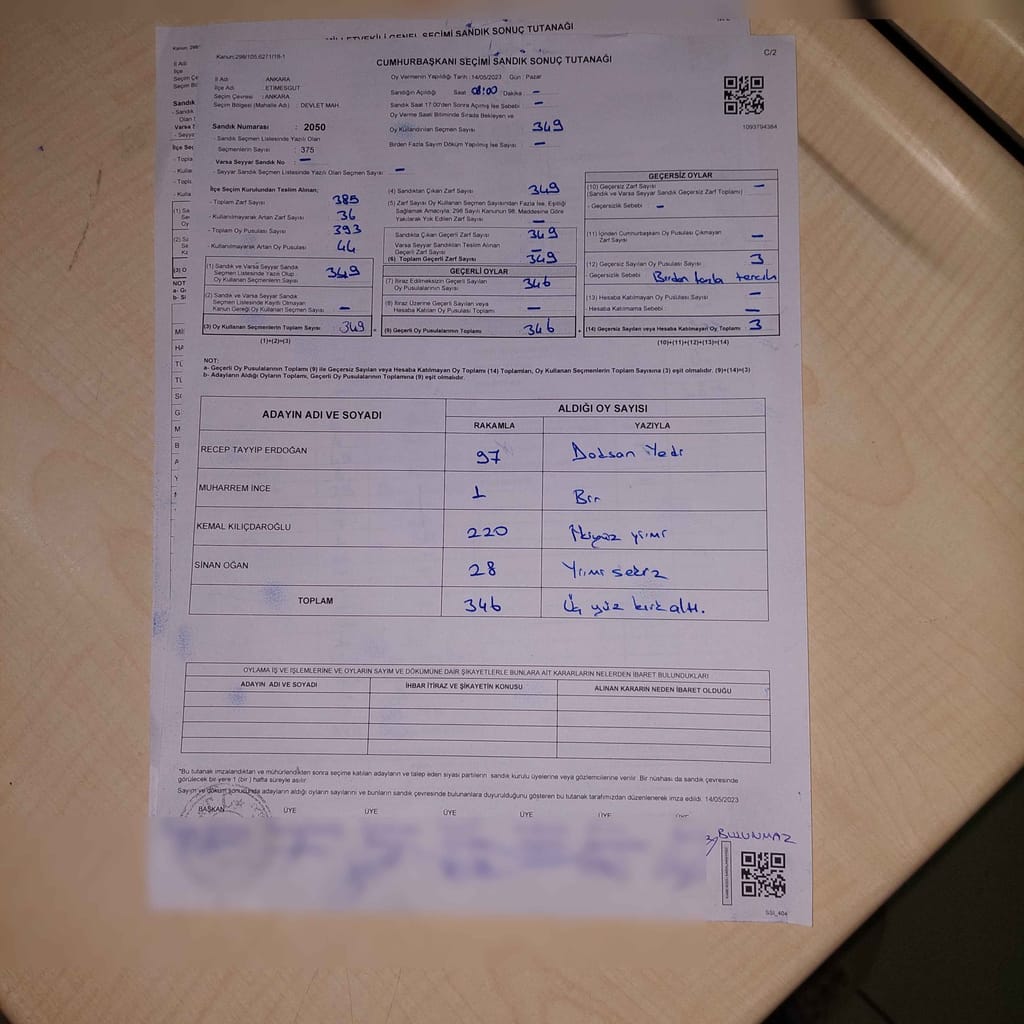 MİLLETVEKİLİ GENEL SEÇİMİ SANDIK SONUÇ TUTANAĞI
Kanun:298/105,6271/18-1
CUMHURBAŞKANI SEÇİMİ SANDIK SONUÇ TUTANAĞI
C/2
İl Adı : ANKARA
İlçe Adı : ETİMESGUT
Seçim Çevresi : ANKARA
Seçim Bölgesi (Mahalle Adı) : DEVLET MAH.
Oy Vermenin Yapıldığı Tarih :14/05/2023 Gün : Pazar
Sandığın Açıldığı Saat 08:00 Dakika –
Sandık Saat 17:00'den Sonra Açılmış İse Sebebi –
Oy Verme Saati Bitiminde Sırada Bekleyen ve
Oy Kullandırılan Seçmen Sayısı 349
Birden Fazla Sayım Döküm Yapılmış İse Sayısı –
1093794384
Sandık Numarası : 2050
- Sandık Seçmen Listesinde Yazılı Olan
Seçmenlerin Sayısı : 375
Varsa Seyyar Sandık No : –
- Seyyar Sandık Seçmen Listesinde Yazılı Olan Seçmen Sayısı –
İlçe Seçim Kurulundan Teslim Alınan;
- Toplam Zarf Sayısı 385
- Kullanılmayarak Artan Zarf Sayısı 36
- Toplam Oy Pusulası Sayısı 393
- Kullanılmayarak Artan Oy Pusulası 44
(1) Sandık ve Varsa Seyyar Sandık
Seçmen Listesinde Yazılı Olup
Oy Kullanan Seçmenlerin Sayısı 349
(2) Sandık ve Varsa Seyyar Sandık
Seçmen Listesinde Kayıtlı Olmayan
Kanun Gereği Oy Kullanan Seçmen Sayısı –
(3) Oy Kullanan Seçmenlerin Toplam Sayısı 349
(1)+(2)=(3)
(4) Sandıktan Çıkan Zarf Sayısı 349
(5) Zarf Sayısı Oy Kullanan Seçmen Sayısından Fazla İse, Eşitliği
Sağlamak Amacıyla, 298 Sayılı Kanunun 98. Maddesine Göre
Yakılarak Yok Edilen Zarf Sayısı –
Sandıkta Çıkan Geçerli Zarf Sayısı 349
Varsa Seyyar Sandıktan Teslim Alınan
Geçerli Zarf Sayısı –
(6) Toplam Geçerli Zarf Sayısı 349
GEÇERLİ OYLAR
(7) İtiraz Edilmeksizin Geçerli Sayılan
Oy Pusulalarının Sayısı 346
(8) İtiraz Üzerine Geçerli Sayılan veya
Hesaba Katılan Oy Pusulası Toplamı –
(9) Geçerli Oy Pusulalarının Toplamı 346
GEÇERSİZ OYLAR
(10) Geçersiz Zarf Sayısı –
(Sandık ve Varsa Seyyar Sandık Geçersiz Zarf Toplamı)
- Geçersizlik Sebebi –
(11) İçinden Cumhurbaşkanı Oy Pusulası Çıkmayan
Zarf Sayısı –
(12) Geçersiz Sayılan Oy Pusulası Sayısı 3
- Geçersizlik Sebebi Birden fazla tercih
(13) Hesaba Katılmayan Oy Pusulası Sayısı –
- Hesaba Katılmama Sebebi –
(14) Geçersiz Sayılan veya Hesaba Katılmayan Oy Toplamı 3
(10)+(11)+(12)+(13)=(14)
NOT:
a- Geçerli Oy Pusulalarının Toplamı (9) ile Geçersiz Sayılan veya Hesaba Katılmayan Oy Toplamı (14) Toplamları, Oy Kullanan Seçmenlerin Toplam Sayısına (3) eşit olmalıdır. (9)+(14)=(3)
b- Adayların Aldığı Oyların Toplamı, Geçerli Oy Pusulalarının Toplamına (9) eşit olmalıdır.
ADAYIN ADI VE SOYADI ALDIĞI OY SAYISI
RAKAMLA YAZIYLA
RECEP TAYYİP ERDOĞAN 97 Doksan Yedi
MUHARREM İNCE 1 Bir
KEMAL KILIÇDAROĞLU 220 İkiyüz yirmi
SİNAN OĞAN 28 Yirmi sekiz
TOPLAM 346 Üç yüz kırk altı.
OYLAMA İŞ VE İŞLEMLERİNE VE OYLARIN SAYIM VE DÖKÜMÜNE DAİR ŞİKAYETLERLE BUNLARA AİT KARARLARIN NELERDEN İBARET BULUNDUKLARI
ADAYIN ADI VE SOYADI İHBAR İTİRAZ VE ŞİKAYETİN KONUSU ALINAN KARARIN NEDEN İBARET OLDUĞU
"Bu tutanak imzalandıktan ve mühürlendikten sonra seçime katılan adayların ve talep eden siyasi partilerin sandık kurulu üyelerine veya gözlemcilerine verilir. Bir nüshası da sandık çevresinde
görülecek bir yere 1 (bir) hafta süreyle asılır.
Sayım ve döküm sonucunda adayların aldığı oyların sayılarını ve bunların sandık çevresinde bulunanlara duyurulduğunu gösteren bu tutanak tarafımızdan düzenlenerek imza edildi. 14/05/2023
BAŞKAN ÜYE ÜYE ÜYE ÜYE ÜYE ÜYE
BULUNMAZ
SSI_404